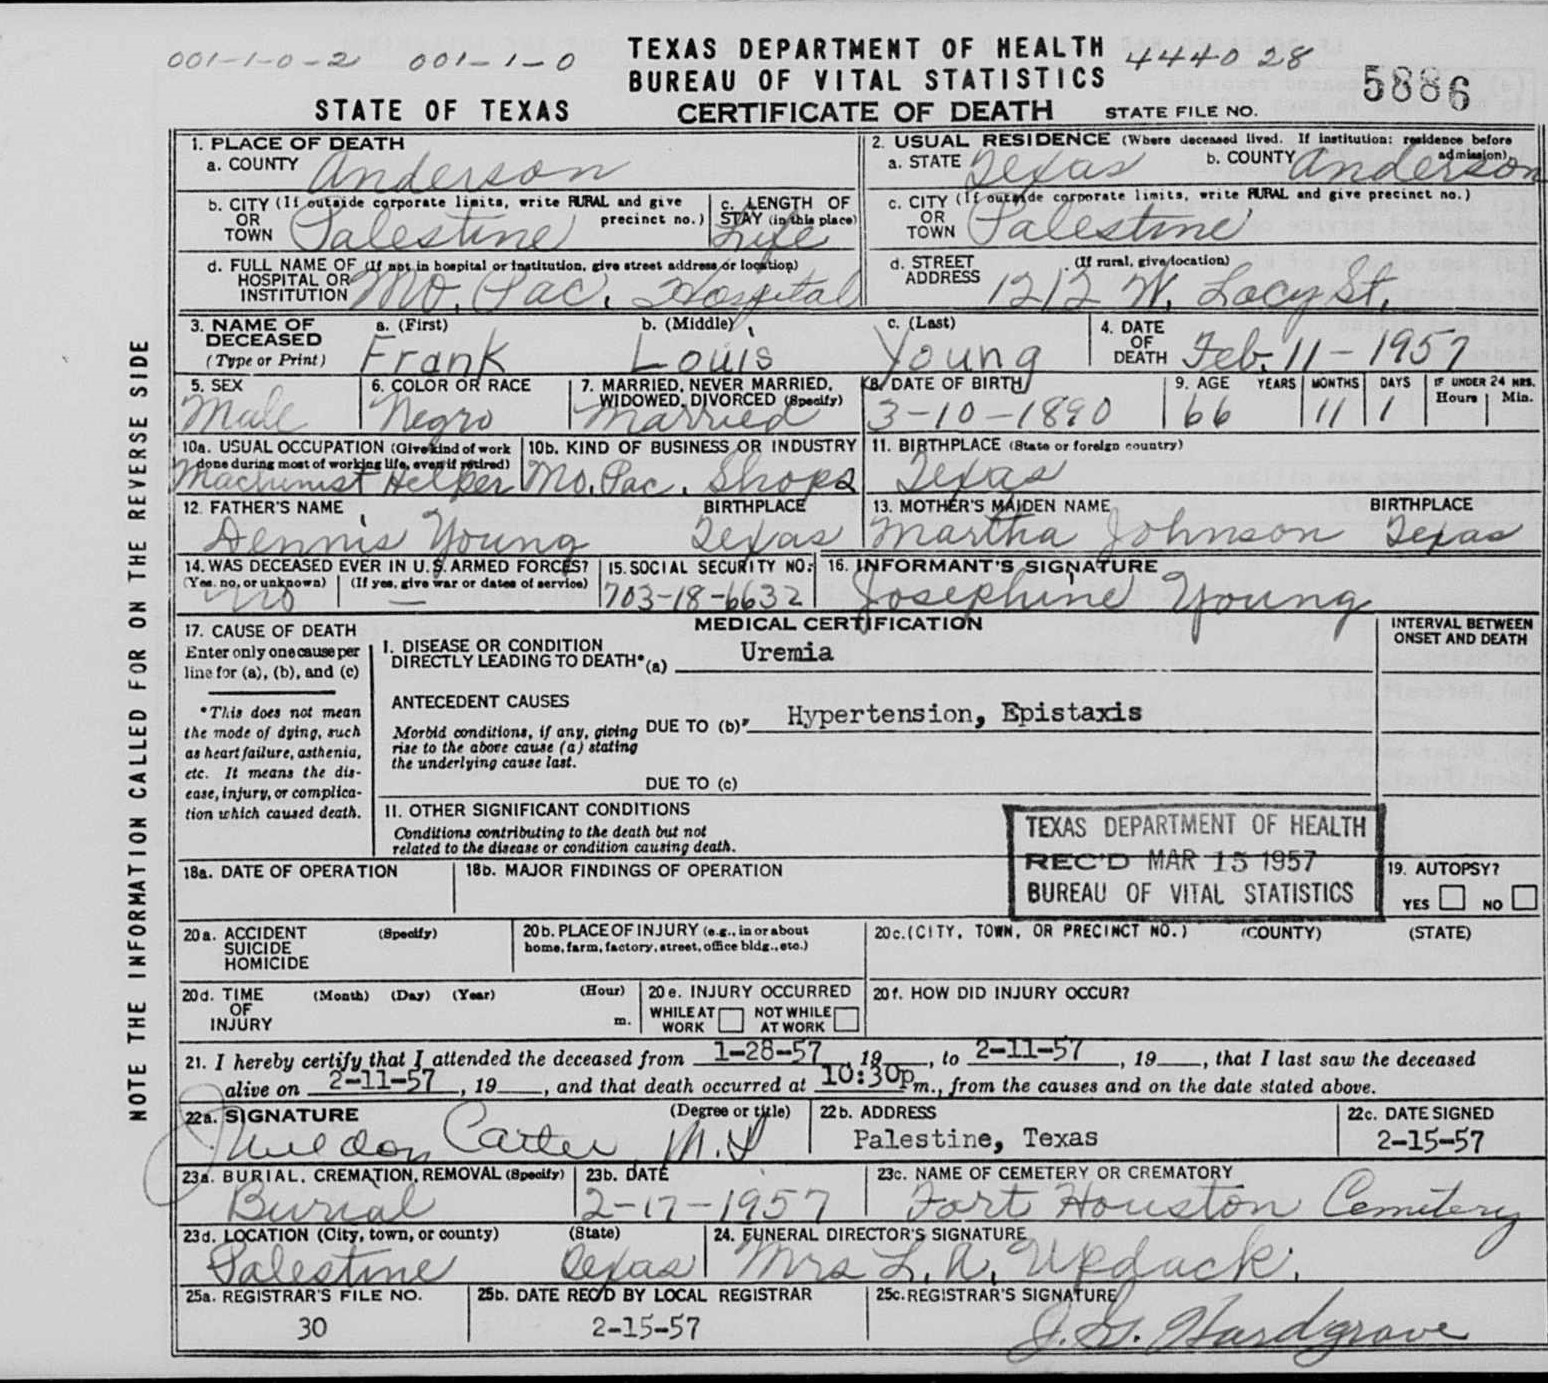 001-1-0-2 001-1-0 TEXAS DEPARTMENT OF HEALTH 4440 28
BUREAU OF VITAL STATISTICS 5886
STATE OF TEXAS CERTIFICATE OF DEATH STATE FILE NO.
NOTE THE INFORMATION CALLED FOR ON THE REVERSE SIDE
1. PLACE OF DEATH
a. COUNTY Anderson
2. USUAL RESIDENCE (Where deceased lived. If institution: residence before admission).
a. STATE Texas b. COUNTY Anderson
b. CITY (If outside corporate limits, write RURAL and give
OR precinct no.)
TOWN Palestine
c. LENGTH OF
STAY (in this place)
Life
c. CITY (If outside corporate limits, write RURAL and give precinct no.)
OR
TOWN Palestine
d. FULL NAME OF (If not in hospital or institution, give street address or location)
HOSPITAL OR
INSTITUTION Mo. Pac. Hospital
d. STREET (If rural, give location)
ADDRESS 1212 W. Lacy St.
3. NAME OF a. (First) b. (Middle) c. (Last)
DECEASED
(Type or Print) Frank Louis Young
4. DATE
OF
DEATH Feb. 11-1957
5. SEX
Male
6. COLOR OR RACE
Negro
7. MARRIED, NEVER MARRIED,
WIDOWED, DIVORCED (Specify)
Married
8. DATE OF BIRTH
3-10-1890
9. AGE YEARS MONTHS DAYS IF UNDER 24 HRS.
Hours Min.
66 11 1
10a. USUAL OCCUPATION (Give kind of work
done during most of working life, even if retired)
Machinist Helper
10b. KIND OF BUSINESS OR INDUSTRY
Mo. Pac. Shops
11. BIRTHPLACE (State or foreign country)
Texas
12. FATHER'S NAME BIRTHPLACE
Dennis Young Texas
13. MOTHER'S MAIDEN NAME BIRTHPLACE
Martha Johnson Texas
14. WAS DECEASED EVER IN U.S. ARMED FORCES?
(Yes, no, or unknown) (If yes, give war or dates of service)
No —
15. SOCIAL SECURITY NO.
703-18-6632
16. INFORMANT'S SIGNATURE
Josephine Young
MEDICAL CERTIFICATION
INTERVAL BETWEEN
ONSET AND DEATH
17. CAUSE OF DEATH
Enter only one cause per
line for (a), (b), and (c)
*This does not mean
the mode of dying, such
as heart failure, asthenia,
etc. It means the dis-
ease, injury, or complica-
tion which caused death.
I. DISEASE OR CONDITION
DIRECTLY LEADING TO DEATH*(a) Uremia
ANTECEDENT CAUSES
Morbid conditions, if any, giving
rise to the above cause (a) stating
the underlying cause last.
DUE TO (b) Hypertension, Epistaxis
DUE TO (c)
II. OTHER SIGNIFICANT CONDITIONS
Conditions contributing to the death but not
related to the disease or condition causing death.
TEXAS DEPARTMENT OF HEALTH
REC'D MAR 15 1957
BUREAU OF VITAL STATISTICS
18a. DATE OF OPERATION
18b. MAJOR FINDINGS OF OPERATION
19. AUTOPSY?
YES NO
20a. ACCIDENT (Specify)
SUICIDE
HOMICIDE
20b. PLACE OF INJURY (e.g., in or about
home, farm, factory, street, office bldg., etc.)
20c. (CITY, TOWN, OR PRECINCT NO.) (COUNTY) (STATE)
20d. TIME (Month) (Day) (Year) (Hour)
OF
INJURY m.
20e. INJURY OCCURRED
WHILE AT NOT WHILE
WORK AT WORK
20f. HOW DID INJURY OCCUR?
21. I hereby certify that I attended the deceased from 1-28-57, 19___, to 2-11-57, 19___, that I last saw the deceased
alive on 2-11-57, 19___, and that death occurred at 10:30p m., from the causes and on the date stated above.
22a. SIGNATURE (Degree or title)
Carter M.D
22b. ADDRESS
Palestine, Texas
22c. DATE SIGNED
2-15-57
23a. BURIAL, CREMATION, REMOVAL (Specify)
Burial
23b. DATE
2-17-1957
23c. NAME OF CEMETERY OR CREMATORY
Fort Houston Cemetery
23d. LOCATION (City, town, or county) (State)
Palestine Texas
24. FUNERAL DIRECTOR'S SIGNATURE
Mrs L. A.
25a. REGISTRAR'S FILE NO.
30
25b. DATE REC'D BY LOCAL REGISTRAR
2-15-57
25c. REGISTRAR'S SIGNATURE
J. G. Hardgrave